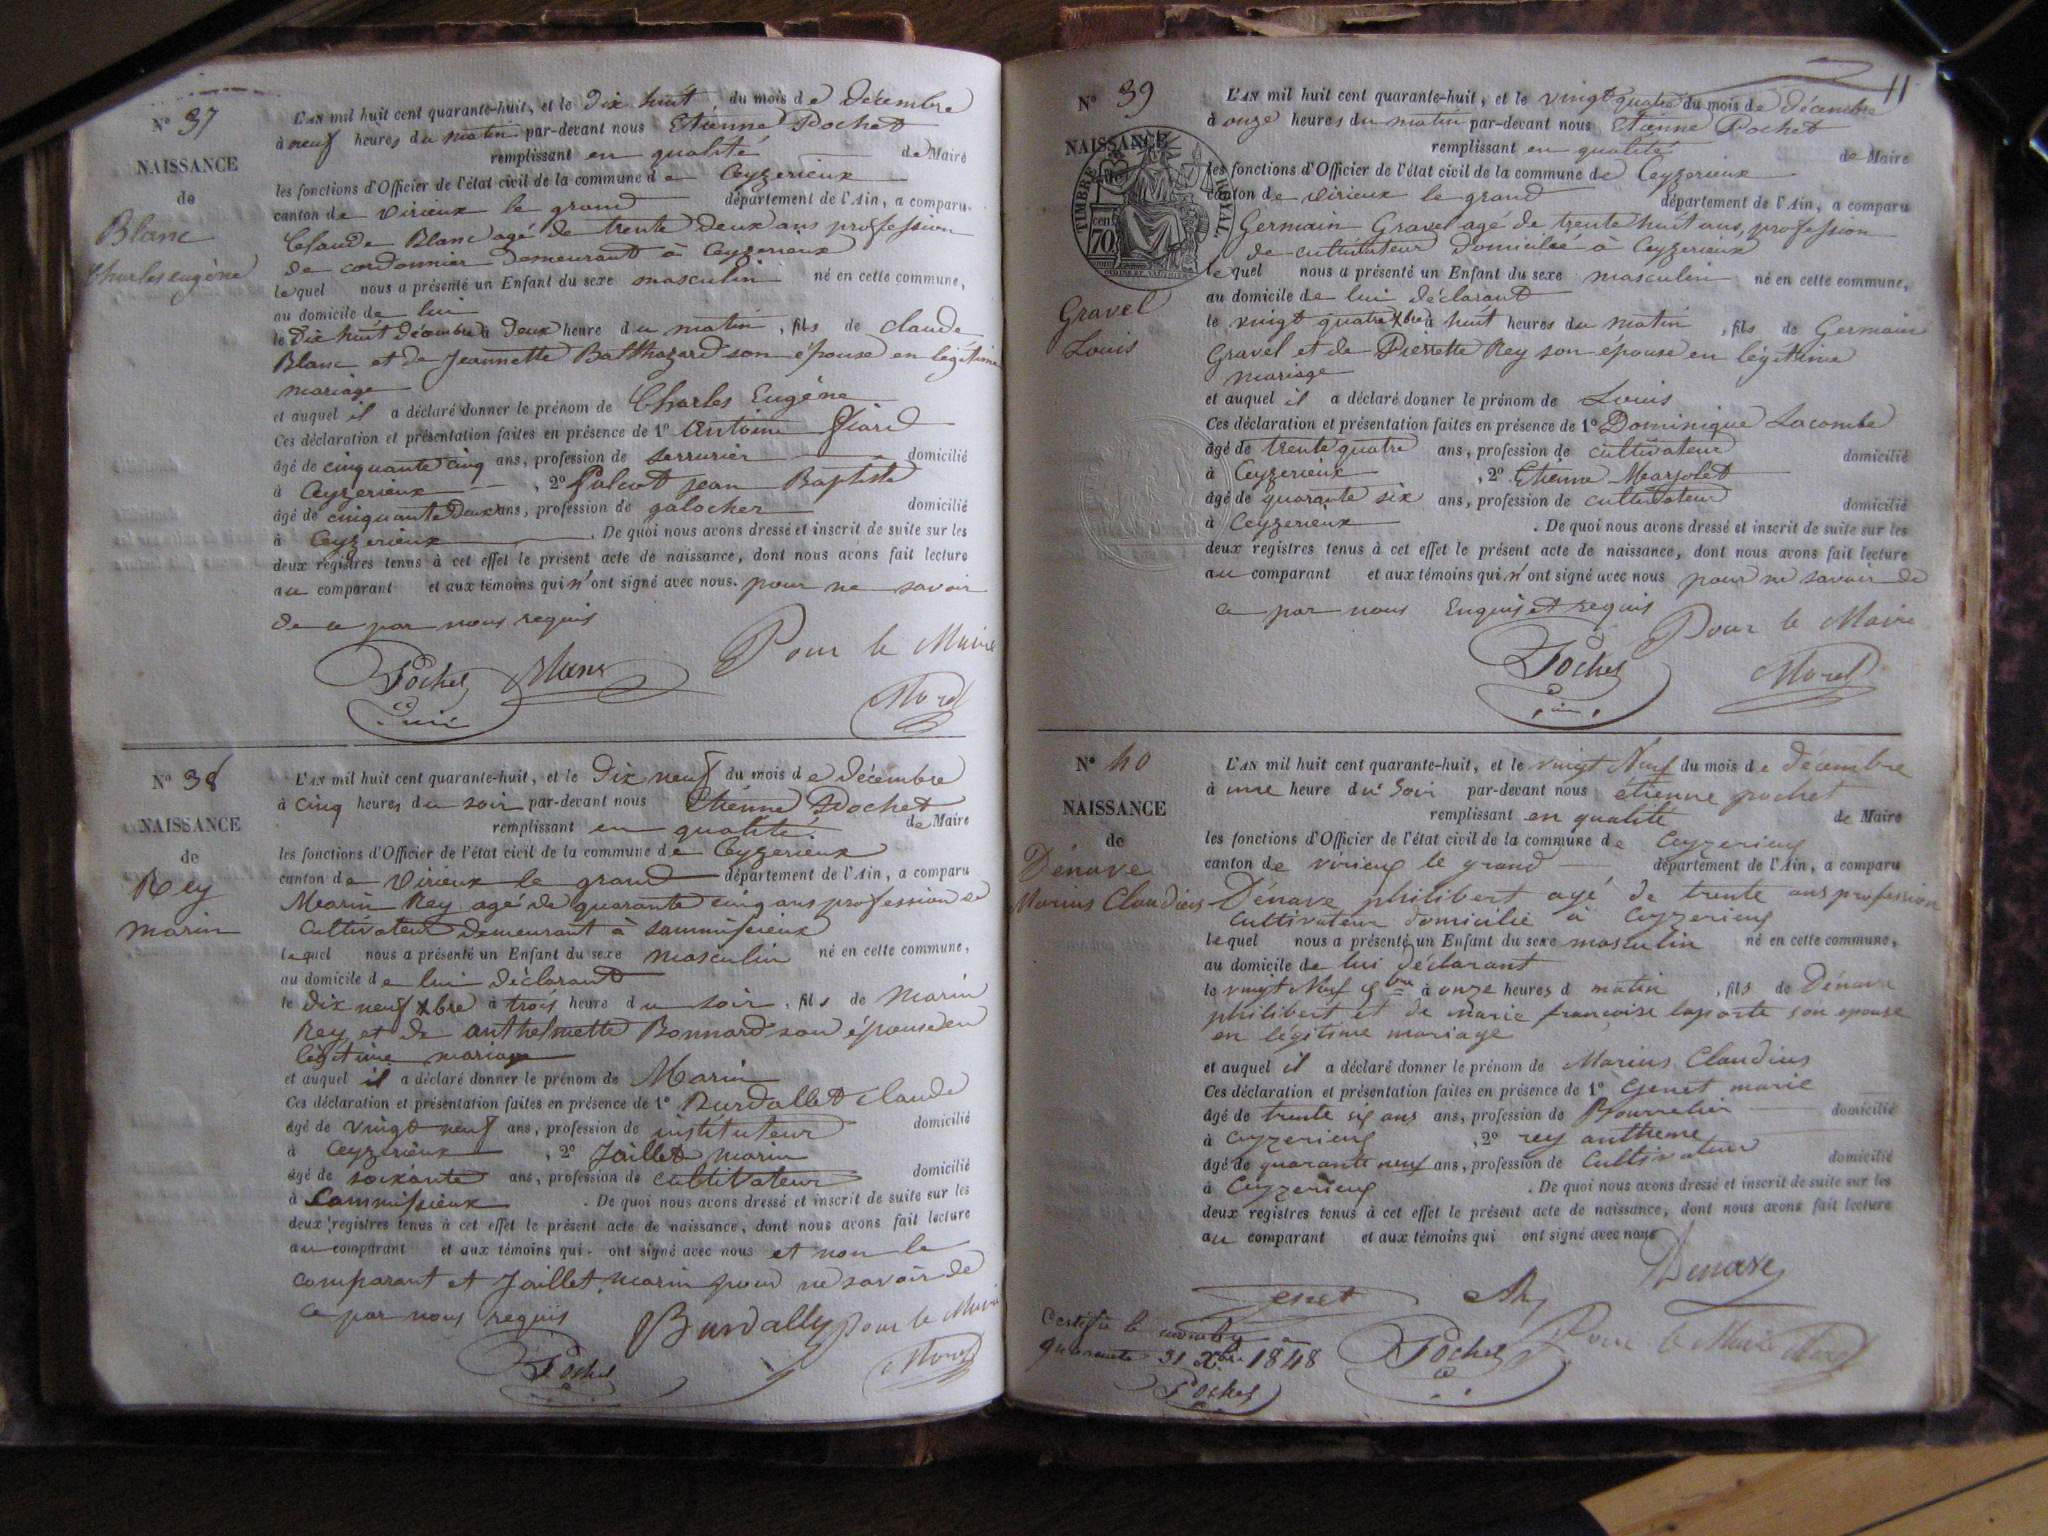 N° 37
NAISSANCE
de
Blanc
Charles eugène
L'AN mil huit cent quarante-huit, et le dix huit du mois de décembre
à neuf heures du matin par-devant nous Etienne Pochet
remplissant en qualité de Maire
les fonctions d'Officier de l'état civil de la commune de Ceyzerieux
canton de Virieux le grand département de l'Ain, a comparu
Claude Blanc agé de trente deux ans profession
de cordonnier demeurant à Ceyzerieux
lequel nous a présenté un Enfant du sexe masculin né en cette commune,
au domicile de lui
le dix huit décembre à deux heure du matin, fils de claude
Blanc et de Jeannette Balthazard son épouse en légitime
mariage
et auquel il a déclaré donner le prénom de Charles Eugène
Ces déclaration et présentation faites en présence de 1° antoine
âgé de cinquante cinq ans, profession de serrurier domicilié
à Ceyzerieux, 2° jean Baptiste
âgé de cinquante deux ans, profession de galocher domicilié
à Ceyzerieux. De quoi nous avons dressé et inscrit de suite sur les
deux registres tenus à cet effet le présent acte de naissance, dont nous avons fait lecture
au comparant et aux témoins qui n'ont signé avec nous. pour ne savoir
de ce par nous requis
Pour le Maire
Pochet Blanc
Morel
N° 38
NAISSANCE
de
Rey
marin
L'AN mil huit cent quarante-huit, et le dix neuf du mois de décembre
à cinq heures du soir par-devant nous Etienne Pochet
remplissant en qualité de Maire
les fonctions d'Officier de l'état civil de la commune de Ceyzerieux
canton de Virieux le grand département de l'Ain, a comparu
Marin Rey agé de quarante cinq ans profession de
Cultivateur demeurant à
lequel nous a présenté un Enfant du sexe masculin né en cette commune,
au domicile de lui déclarant
le dix neuf Xbre à trois heure du soir, fils de Marin
Rey et de anthelmette Bonnard son épouse en
légitime mariage
et auquel il a déclaré donner le prénom de Marin
Ces déclaration et présentation faites en présence de 1° Burdallet claude
âgé de vingt neuf ans, profession de instituteur domicilié
à Ceyzerieux, 2° Jaillet marin
âgé de soixante ans, profession de cultivateur domicilié
à. De quoi nous avons dressé et inscrit de suite sur les
deux registres tenus à cet effet le présent acte de naissance, dont nous avons fait lecture
au comparant et aux témoins qui ont signé avec nous et non le
comparant et Jaillet marin pour ne savoir de
ce par nous requis Pour le Maire
Pochet
Morel
11
N° 39
NAISSANCE
TIMBRE ROYAL
70
Gravel
Louis
L'AN mil huit cent quarante-huit, et le vingt quatre du mois de décembre
à onze heures du matin par-devant nous Etienne Pochet
remplissant en qualité de Maire
les fonctions d'Officier de l'état civil de la commune de Ceyzerieux
canton de Virieux le grand département de l'Ain, a comparu
Germain Gravel agé de trente huit ans, profession
de cultivateur domicilié à Ceyzerieux
lequel nous a présenté un Enfant du sexe masculin né en cette commune,
au domicile de lui déclarant
le vingt quatre Xbre à huit heures du matin, fils de Germain
Gravel et de Pierrette Rey son épouse en légitime
mariage
et auquel il a déclaré donner le prénom de Louis
Ces déclaration et présentation faites en présence de 1° Dominique Lacombe
âgé de trente quatre ans, profession de cultivateur domicilié
à Ceyzerieux, 2° Etienne Marjolet
âgé de quarante six ans, profession de cultivateur domicilié
à Ceyzerieux. De quoi nous avons dressé et inscrit de suite sur les
deux registres tenus à cet effet le présent acte de naissance, dont nous avons fait lecture
au comparant et aux témoins qui n'ont signé avec nous pour ne savoir de
ce par nous Enquis et requis
Pour le Maire
Pochet
Morel
N° 40
NAISSANCE
de
Dénave
Marius Claudius
L'AN mil huit cent quarante-huit, et le vingt Neuf du mois de décembre
à une heure du Soir par-devant nous étienne pochet
remplissant en qualité de Maire
les fonctions d'Officier de l'état civil de la commune de Ceyzerieux
canton de virieux le grand département de l'Ain, a comparu
Dénave philibert agé de trente ans profession
Cultivateur domicilié à Ceyzerieux
lequel nous a présenté un Enfant du sexe masculin né en cette commune,
au domicile de lui déclarant
le vingt Neuf Xbre à onze heures d matin, fils de Dénave
philibert et de marie françoise laporte son epouse
en légitime mariage
et auquel il a déclaré donner le prénom de Marius Claudius
Ces déclaration et présentation faites en présence de 1° Genet marie
âgé de trente six ans ans, profession de Bourrelier domicilié
à Ceyzerieux, 2° rey antheme
âgé de quarante neuf ans, profession de Cultivateur domicilié
à Ceyzerieux. De quoi nous avons dressé et inscrit de suite sur les
deux registres tenus à cet effet le présent acte de naissance, dont nous avons fait lecture
au comparant et aux témoins qui ont signé avec nous
Denave
Genet Rey
Certifié le nombre
quarante 31 Xbre 1848
Pochet
Pochet Pour le Maire Morel